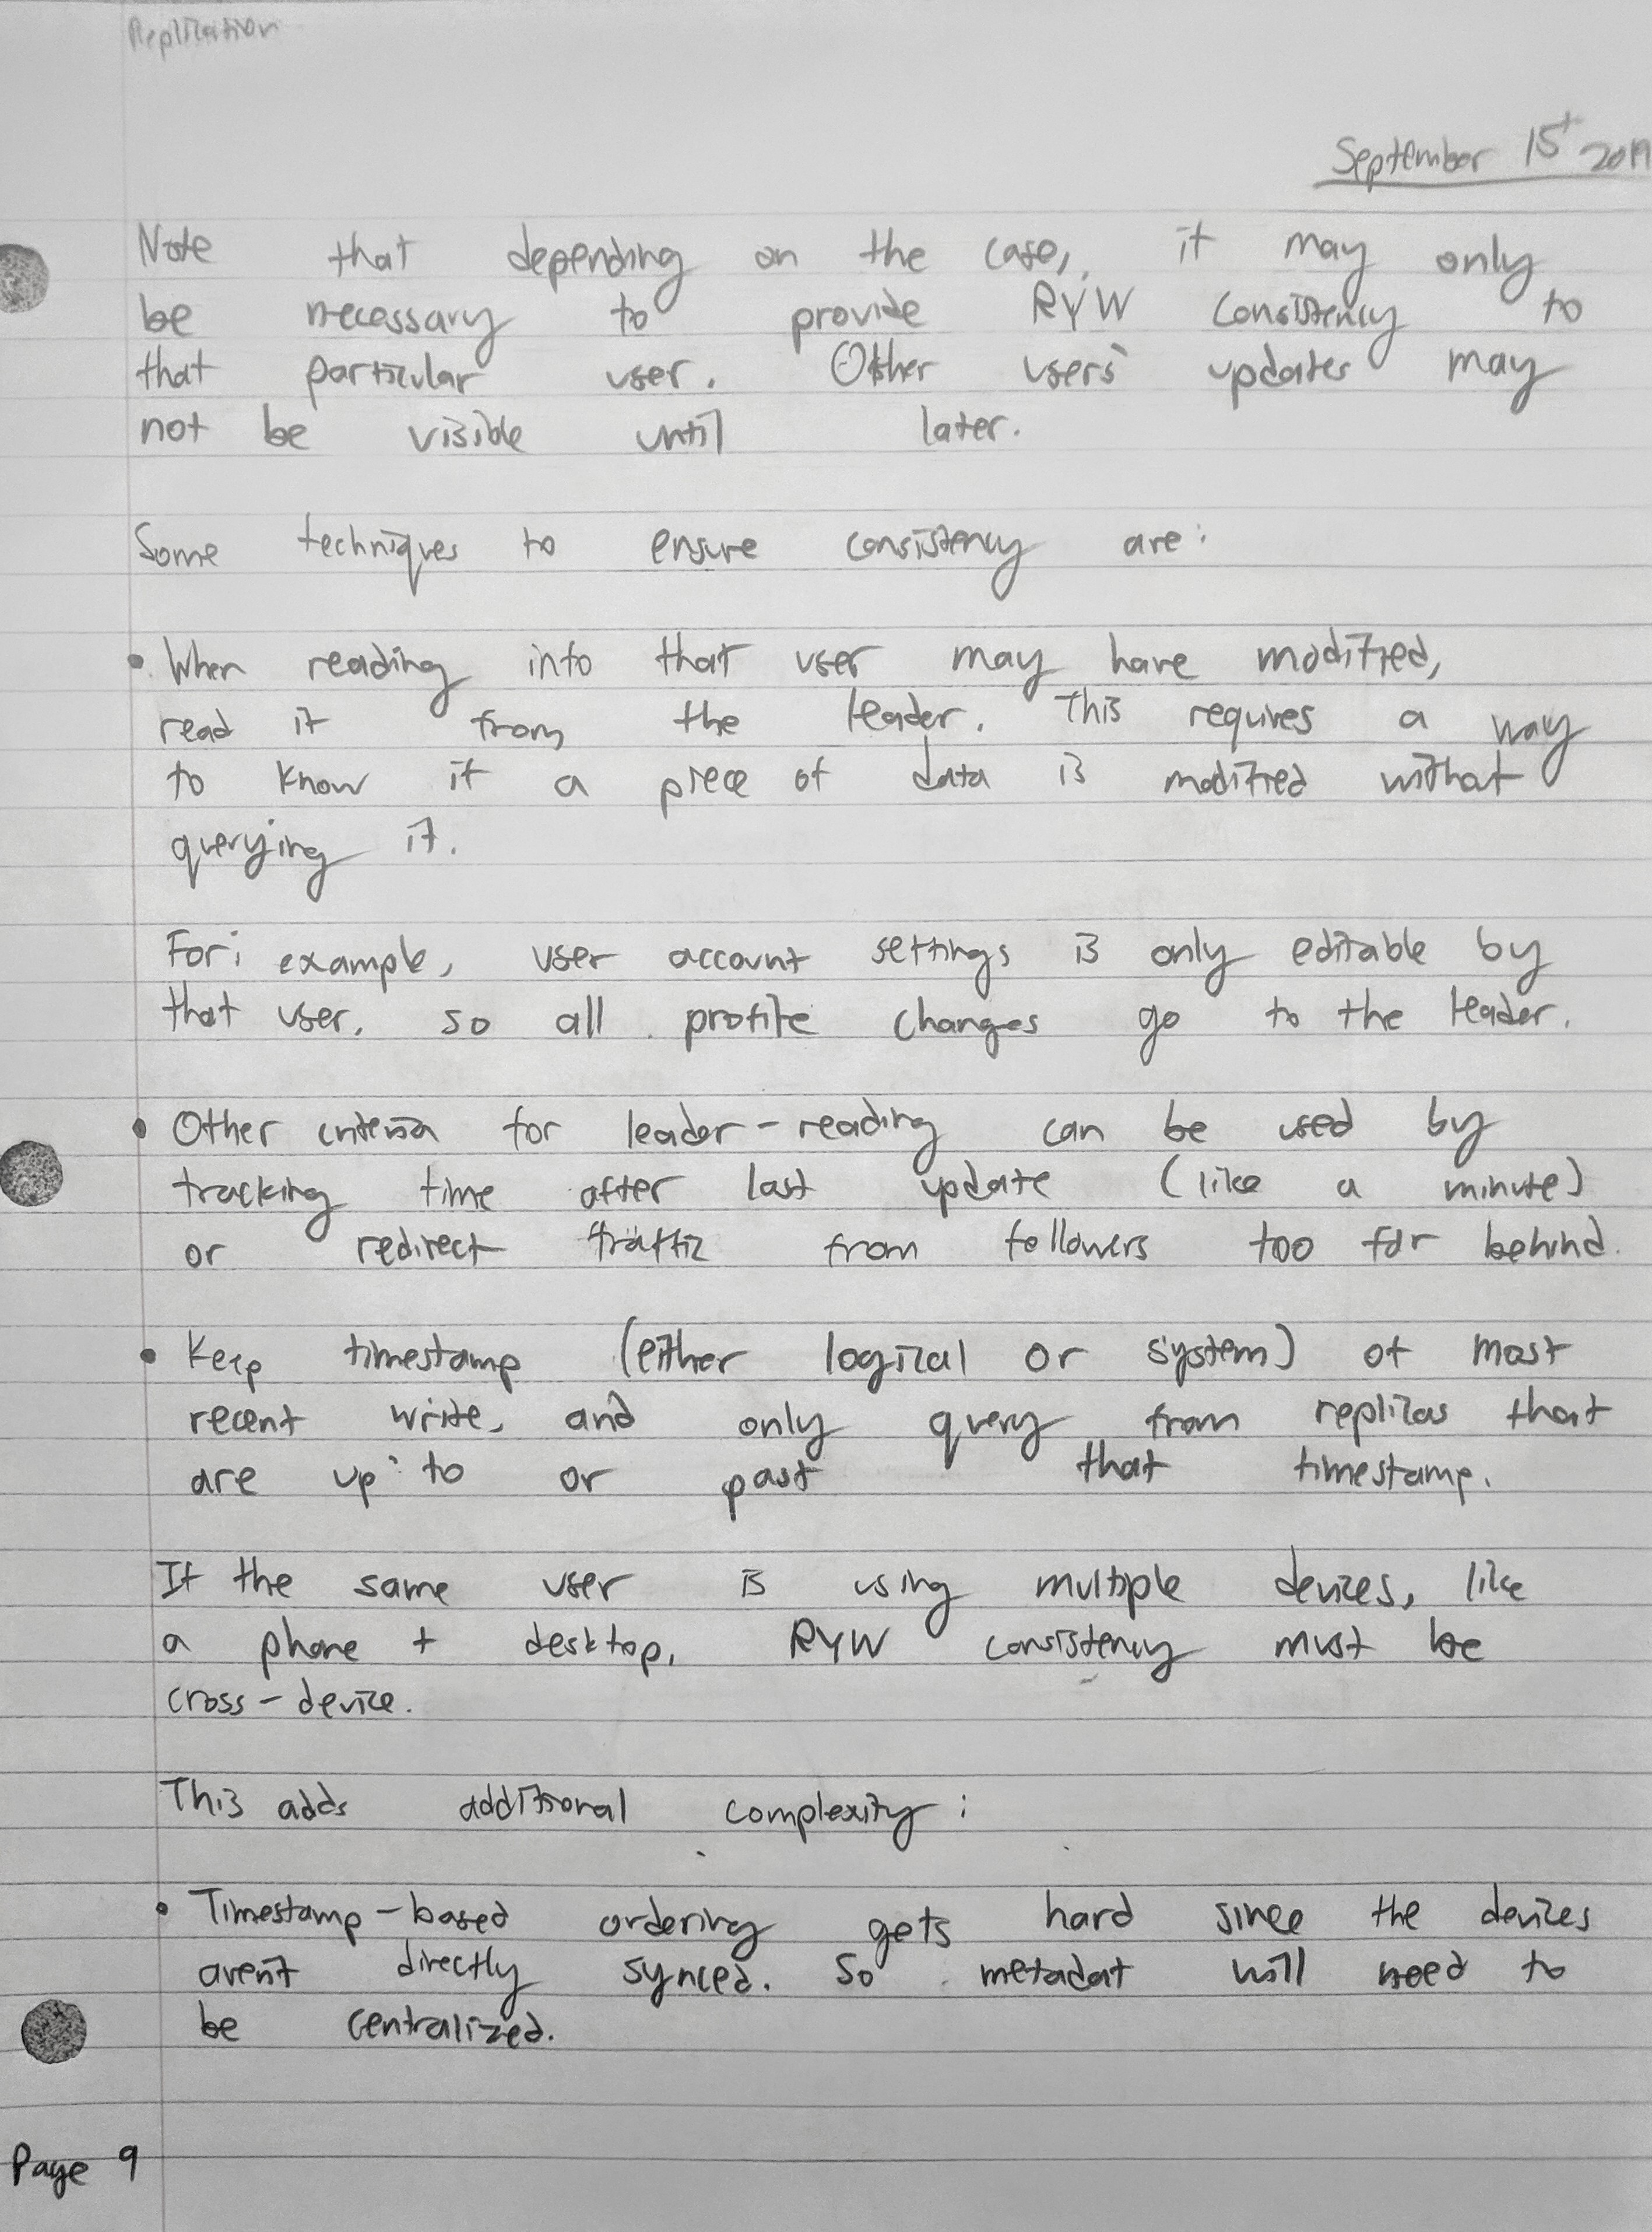 Replication
September 15th 2019
Note that depending on the case, it may only
be necessary to provide RYW consistency to
that particular user. Other users' updates may
not be visible until later.
Some techniques to ensure consistency are:
• When reading info that user may have modified,
read it from the leader. This requires a way
to know if a piece of data is modified without
querying it.
For example, user account settings is only editable by
that user, so all profile changes go to the leader.
• Other criteria for leader-reading can be used by
tracking time after last update (like a minute)
or redirect traffic from followers too far behind.
• Keep timestamp (either logical or system) of most
recent write, and only query from replicas that
are up to or past that timestamp.
If the same user is using multiple devices, like
a phone + desktop, RYW consistency must be
cross-device.
This adds additional complexity:
• Timestamp-based ordering gets hard since the devices
aren't directly synced. So metadat will need to
be centralized.
Page 9